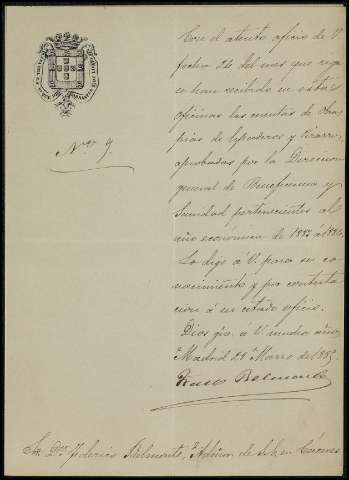 Con el atento oficio de V
fecha 24 del mes que rige
se han recibido en estas
oficinas las cuentas de Obras
pias de Cepederos y Pizarro
aprobadas por la Direccion
general de Beneficencia y
Sanidad pertenecientes al
año económico de 1883 á 1884
Lo digo á V. para su co
nocimiento y por contesta
cion á su citado oficio.
Nº 9.
Dios gue. á V. muchos años
Madrid 29 Marzo de 1885
Belmonte
Sr. Dn. Federico Belmonte, Admor. de en Cáceres